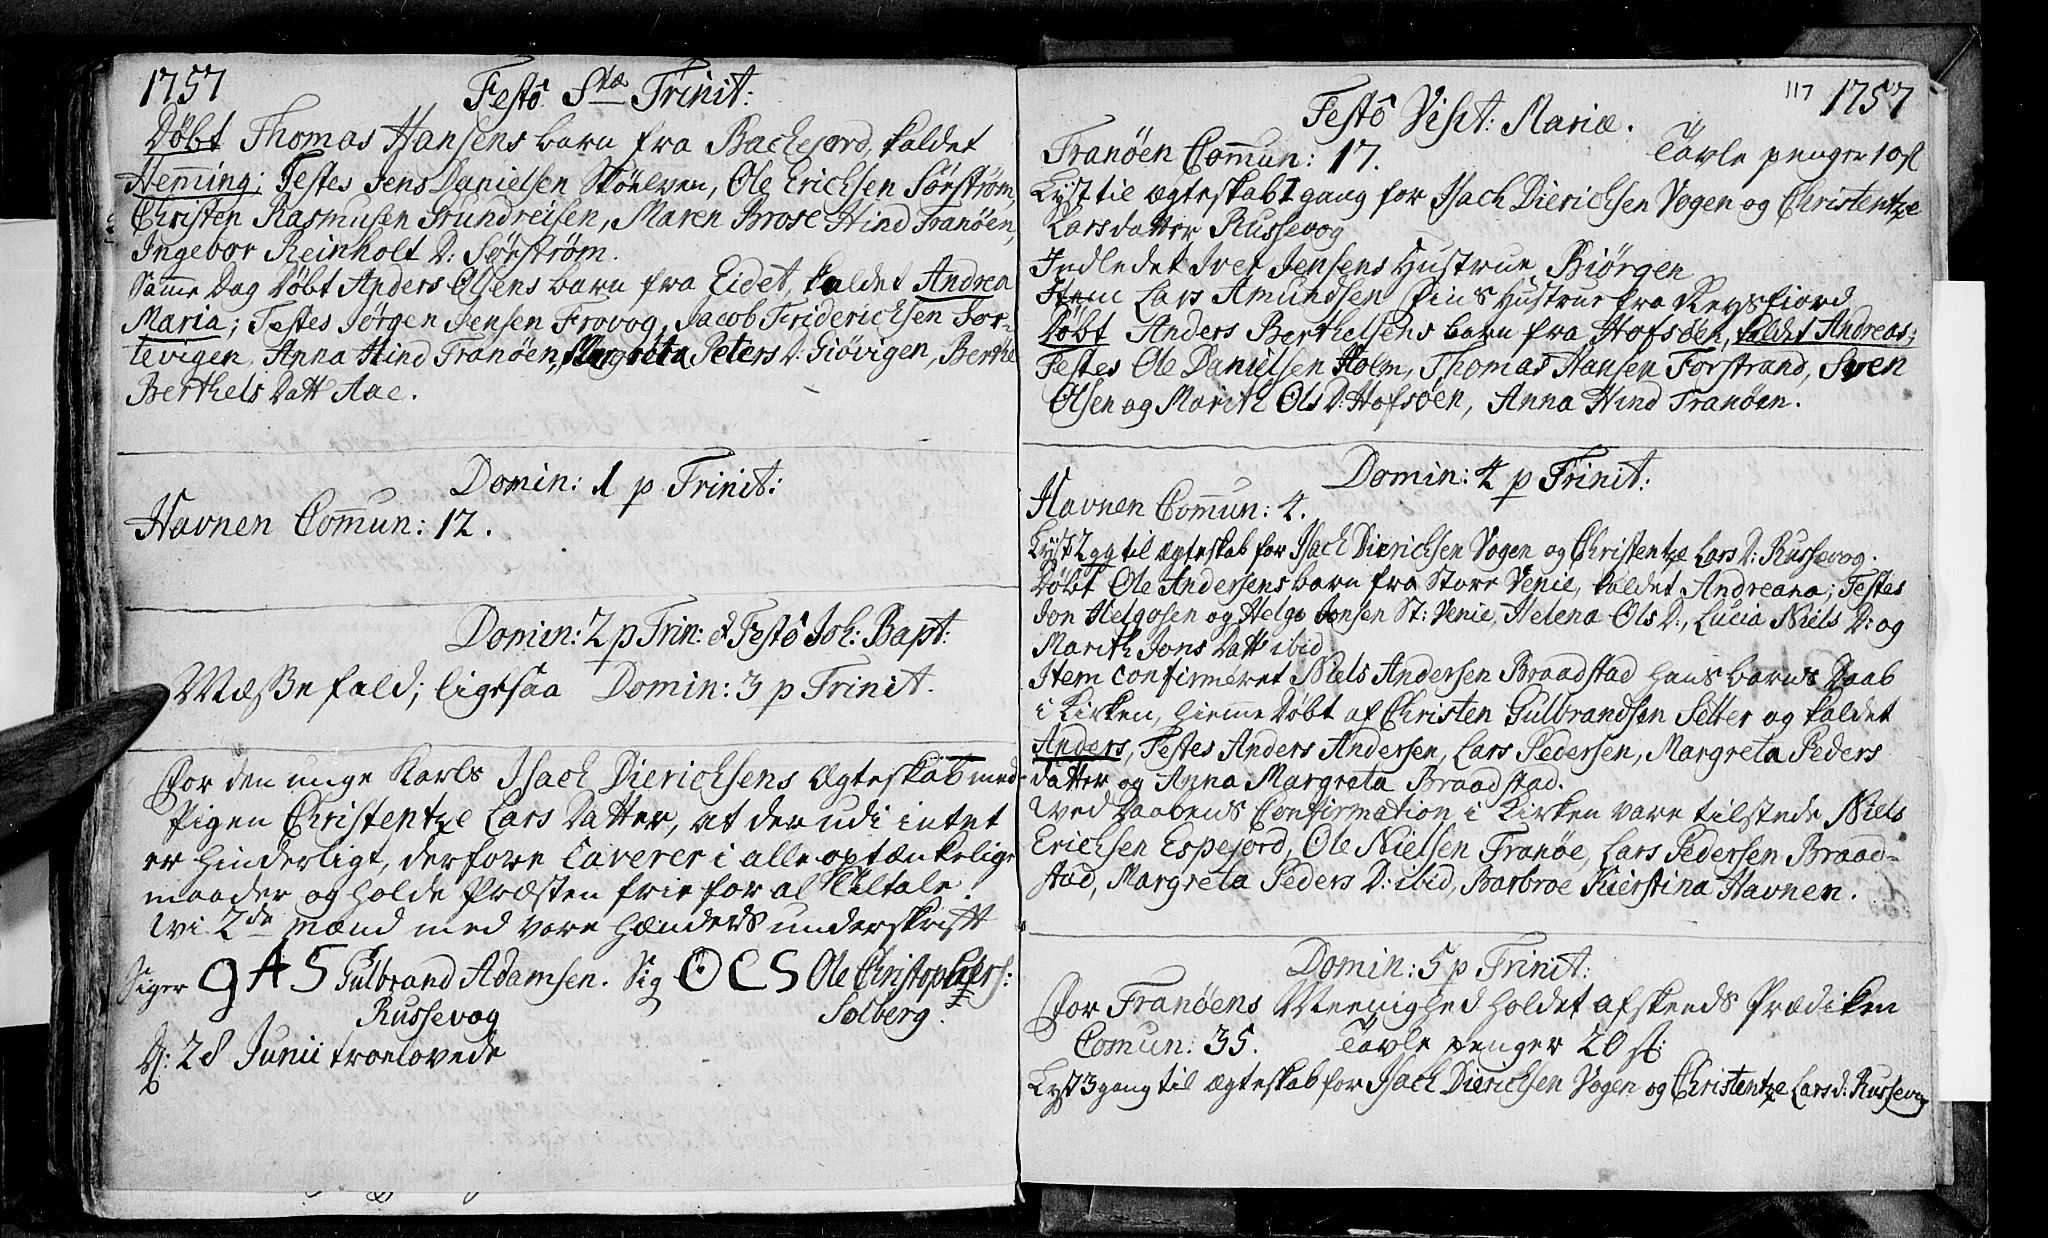 1757
Festô Stæ Trinit:
Døbt Thomas Hansens barn fra Bachejord, kaldet
Heming; Testes Jens Danielsen Skøelven, Ole Erichsen Sørstrøm,
Christen Rasmusen Grundreisen, Maren Brose Hind Tranøen,
Ingebor Reinholt D: Sørstrøm.
Samme Dag Døbt Anders Olsens barn fra Eidet, kaldet Andrea
Maria; Testes Jørgen Jensen Frovog, Jacob Friderichsen Tor-
tevigen, Anna Hind Tranøen, Margreta Peters D: Giøvigen, Berthe
Berthels Datt Aae.
Domin: 1 p Trinit:
Havnen Com̄un: 12.
Domin: 2 p Trin: & Festô Joh: Bapt:
Mæsse fald; ligesaa Domin: 3 p Trinit.
For den unge Karls Isach Dierichsens Ægteskab med
Pigen Christentze Lars Datter, at der udi intet
er hinderligt, derfore Caverer i alle optænkelige
maader og holde Præsten frie for al Tiltale
Wi 2de Mænd med vore hænders underskrift
Siger G A S Gulbrand Adamsen. Sig O C S Ole Christophers:
Russevog Solberg.
D: 28 Junii troelovede
117 1757
Festô Visit: Mariæ.
Tranöen Com̄un: 17. Tavle penger 10 sl
Lyst til ægteskab 1 gang for Isach Dierichsen Vogen og Christentze
Larsdatter Russevog
Indledet Iver Jensens Hustrue Biörgen
Item Lars Amundsen Sins Hustrue fra Reysfiord
Döbt Anders Berthelsens barn fra Hofsöen, kaldet Andreas;
Testes Ole Danielsen Holm, Thomas Hansen Forstrand, Sven
Olsen og Marith Ols D: Hofsöen, Anna Hind Tranöen.
Domin: 4 p Trinit:
Havnen Com̄un: 4.
Lyst 2 gg til ægteskab for Isach Dierichsen Vogen og Christentze Lars D: Russevog.
Döbt Ole Andersens barn fra Store Venie, kaldet Andreana; Testes
Jon Helgosen og Helgo Jonsen St: Venie, Helena Ols D:, Lucia Niels D: og
Marith Jons Datt ibid
Item confirmeret Niels Andersen Braadstad hans barns Daab
i Kirken, hiemme Döbt af Christen Gulbrandsen Selter og kaldet
Anders, Testes Anders Andersen, Lars Pedersen, Margreta Peders
datter og Anna Margreta Braadstad.
Ved Daabens Confirmation i Kirken vare tilstede Niels
Erichsen Espejord, Ole Nielsen Tranöe, Lars Pedersen Braad-
stad, Margreta Peders D: ibid, Barbroe Kierstina Havnen.
Domin: 5 p Trinit:
For Tranöens Meenighed holdet afskeeds Prædiken
Comun: 35. Tavle penger 20 sl:
Lyst 3 gang til ægteskab for Isach Dierichsen Vogen og Christentze Lars d: Russevog